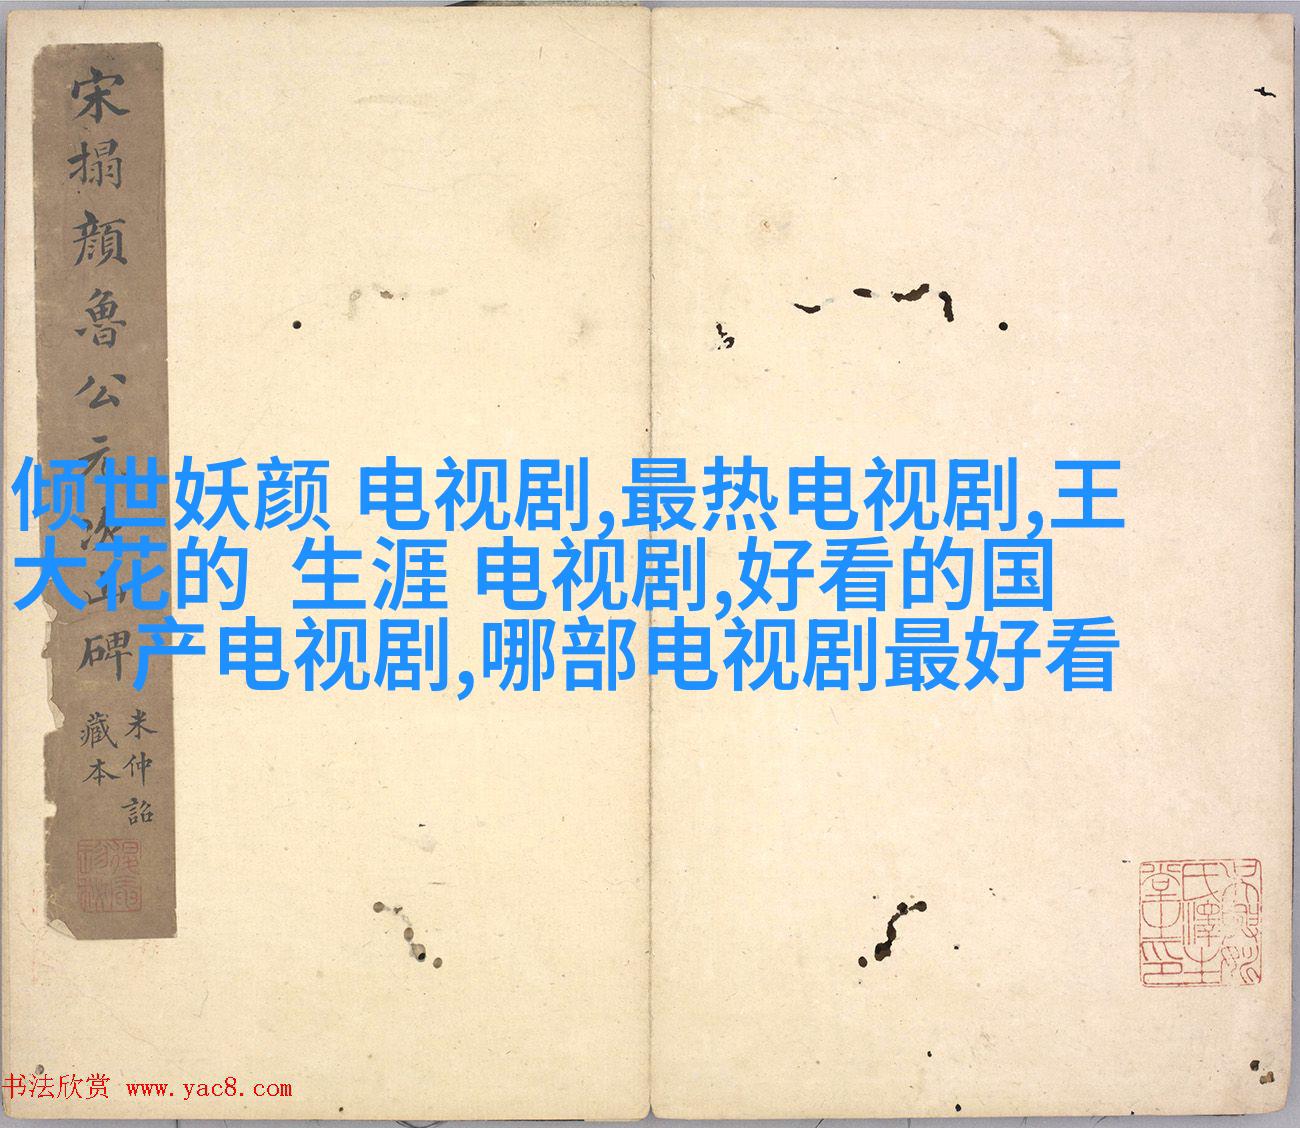 宋搨顔魯公元次山碑
米仲詔
藏本
倾世妖颜 电视剧,最热电视剧,王
大花的 生涯 电视剧,好看的国
产电视剧,哪部电视剧最好看
书法欣赏 www.yac8.com